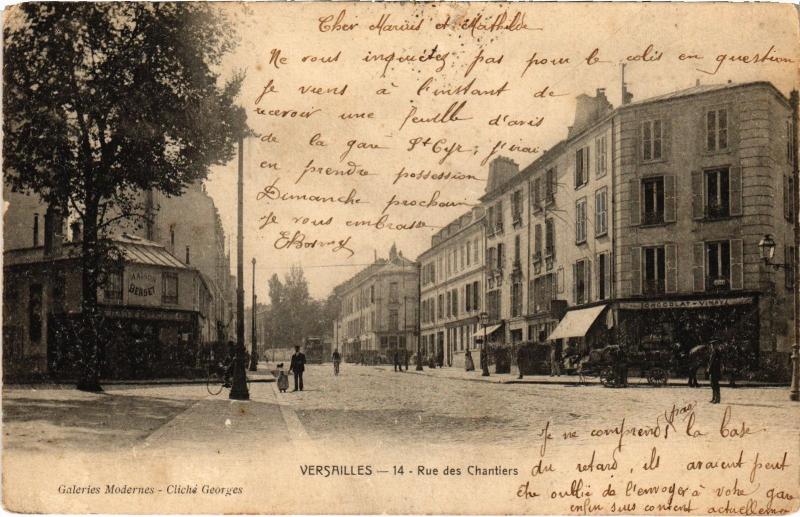 Cher Marius et Mathilde
Ne vous inquietez pas pour le colis en question
Je viens à l'instant de
recevoir une feuille d'avis
de la gare St Cyr; j'irai
en prendre possession
Dimanche prochain
Je vous embrasse
MAISON
BERSET
CHOCOLAT - VINAY
Je ne comprends pas la base
du retard, ils avaient peut
être oublié de l'envoyer à votre gare
enfin suis content actuellement
VERSAILLES — 14 - Rue des Chantiers
Galeries Modernes - Cliché Georges